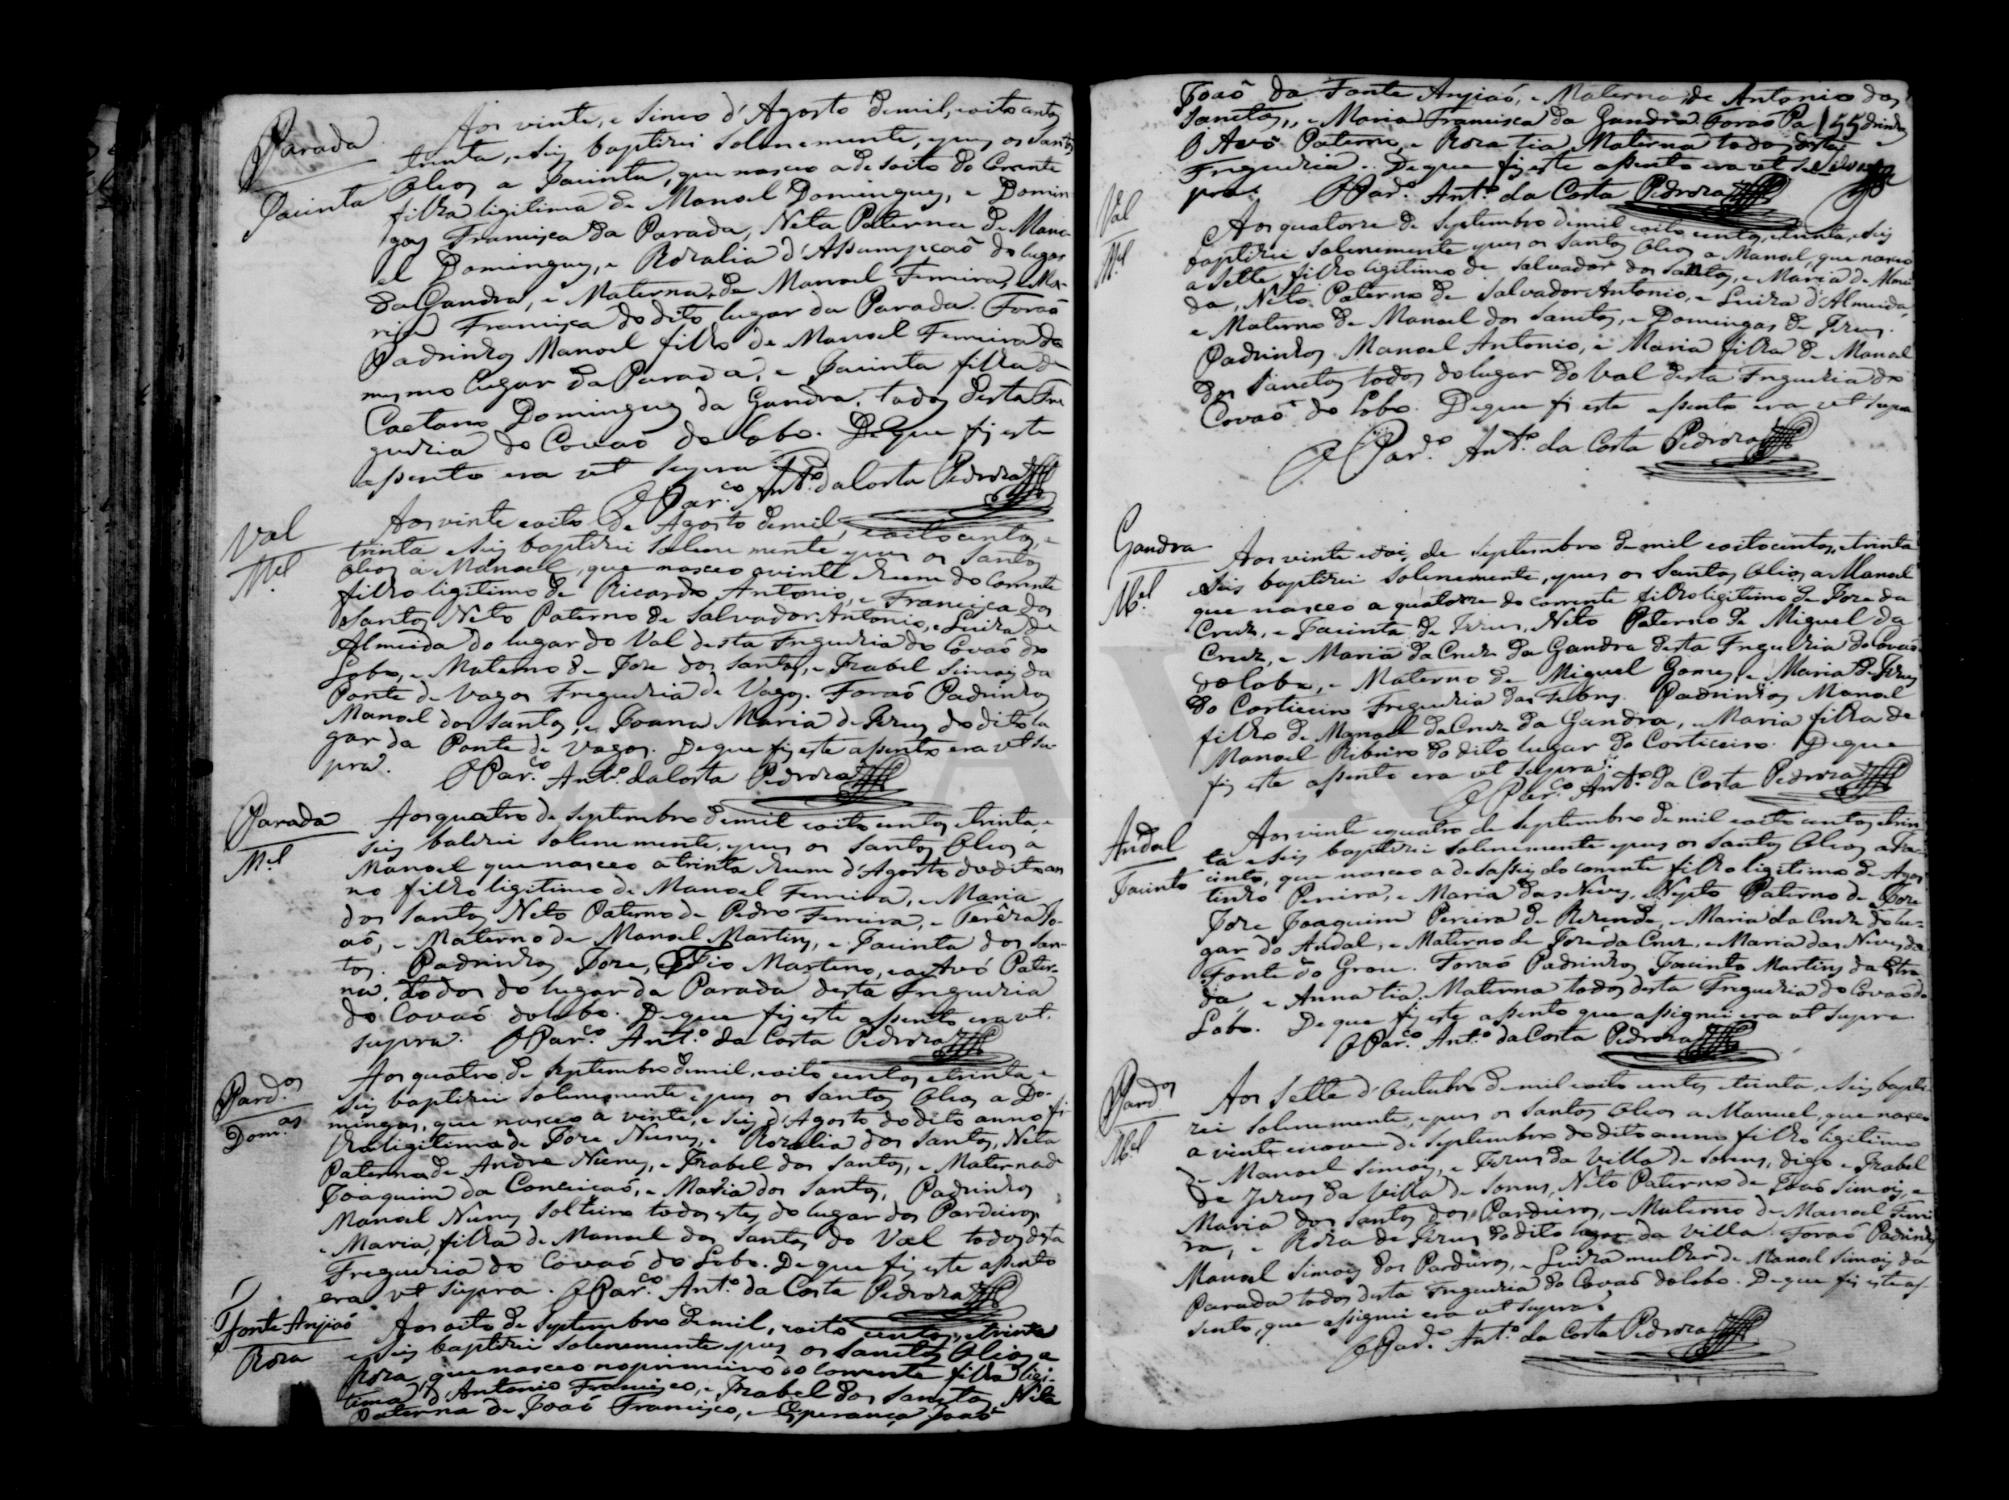 Parada
Jacinta
Aos vinte, e Sinco d'Agosto demil, eoito centos
trinta, e Seis baptizei Solenemente, epus os Santos
Oleos a Jacinta, que nasceo a desoito do Corrente
filha ligitima de Manoel Domingues, e Domin
gas Francisca da Parada, Neta Paterna de Mano-
el Domingues, e Rozalia d'Assumpcaõ do lugar
da Gandra, e Materna de Manoel Ferreira, e Ma-
ria Francisca do dito lugar da Parada. Foraõ
Padrinhos Manoel filho de Manoel Ferreira do
mesmo lugar da Parada, e Jacinta filha de
Caetano Domingues da Gandra, todos desta Fre
guezia do Covaõ do Lobo. Deque fis este
assento era ut supra
O Par.co Ant.o da Costa Pedroza
Val
M.el
Aos vinte eoito de Agosto demil, eoito centos, e
trinta e Seis baptizei Solene mente epus os Santos
Oleos a Manoel, que nasceo avinte ehum do Corrente
filho ligitimo de Ricardo Antonio, e Francisca dos
Santos, Neto Paterno de Salvador Antonio, e Luiza de
Almeida do lugar do Val desta Freguezia do Covaõ do
Lobo, e Materno de Joze dos Santos, e Izabel Simois da
Ponte de Vagos Freguezia de Vagos. Foraõ Padrinhos
Manoel dos Santos, e Joana Maria de Jezus do dito lu
gar da Ponte de Vagos. Deque fis este assento era ut su-
pra.
O Par.co Ant.o da Costa Pedroza
Parada
M.el
Aos quatro de Septembro demil eoito centos etrinta, e
Seis batizei Solenemente, epus os Santos Oleos a
Manoel que nasceo atrinta ehum d'Agosto do dito an
no filho ligitimo de Manoel Ferreira, e Maria
dos Santos, Neto Paterno de Pedro Ferreira, e Tereza Jo-
aõ, e Materno de Manoel Martins, e Jacinta dos San-
tos. Padrinhos Joze, Tio Materno, e a Avó Pater-
na, todos do lugar da Parada desta Freguezia
do Covaõ do Lobo. Deque fis este assento era ut
supra. O Par.co Ant.o da Costa Pedroza
Pard.os
Dom.as
Aos quatro de Septembro demil, eoito centos etrinta e
Seis baptizei Solenemente epus os Santos Oleos a Do-
mingas, que nasceo a vinte, e Seis d'Agosto do dito anno fi
lha ligitima de Joze Nunes, e Rozalia dos Santos, Neta
Paterna de Andre Nunes, e Izabel dos Santos, e Materna d
Joaquim da Conceicaõ, e Maria dos Santos, Padrinhos
Manoel Nunes Solteiro todos estes do lugar dos Pardeiros
e Maria, filha de Manoel dos Santos do Val todos desta
Freguezia do Covaõ do Lobo. Deque fis este assento
era ut supra. O Par.co Ant.o da Costa Pedroza
Fonte Anjiaõ
Roza
Aos oito de Septembro demil, eoito centos, etrinta
e Seis baptizei Solenemente epus os Sanctos Oleos a
Roza, que nasceo no primeiro do Corrente filha ligi-
tima d'Antonio Francisco, e Izabel dos Sanctos, Neta
Paterna de Joaõ Francisco, e Esperança Joaõ
Joaõ da Fonte Anjiaõ, e Materna de Antonio dos
Sanctos, e Maria Francisca da Gandra. Foraõ Pa 155 drinhos
O Avô Paterno, e Roza tia Materna todos desta
Freguezia. Deque fis este assento era ut su
pra. O Par.o Ant.o da Costa Pedroza
Val
M.el
Aos quatorze de Septembro demil eoito centos, etrinta, e Seis
baptizei Solenemente epus os Santos Oleos a Manoel, que nasceo
a Sette filho ligitimo de Salvador dos Santos, e Maria de Almei
da, Neto Paterno de Salvador Antonio, e Luiza d'Almeida,
e Materno de Manoel dos Sanctos, e Domingas de Jezus.
Padrinhos Manoel Antonio, e Maria filha de Manoel
dos Sanctos todos do lugar do Val desta Freguezia do
Covaõ do Lobo. Deque fis este assento era ut supra
O Par.o Ant.o da Costa Pedroza
Gandra
M.el
Aos vinte edois de Septembro de mil eoitocentos, etrinta
eSeis baptizei Solenemente, epus os Santos Oleos a Manoel
que nasceo a quatorze do corrente filho ligitimo de Joze da
Cruz, e Jacinta de Jezus, Neto Paterno de Miguel da
Cruz, e Maria da Cruz da Gandra desta Freguezia do Covaõ
do Lobo, e Materno de Miguel Gomes, e Maria de Jezus
do Corticeiro Freguezia das Febres. Padrinhos Manoel
filho de Manoel da Cruz da Gandra, e Maria filha de
Manoel Ribeiro do dito lugar do Corticeiro. Deque
fis este assento era ut supra.
O Par.co Ant.o da Costa Pedroza
Andal
Jacinto
Aos vinte equatro de Septembro de mil eoito centos etrin
ta e Seis baptizei Solenemente epus os Santos Oleos a Ja-
cinto, que nasceo a desasseis do corrente filho ligitimo de Agos
tinho Pereira, e Maria das Neves, Neto Paterno de Joze
Joze Joaquim Pereira de Rezende, e Maria da Cruz do lu-
gar do Andal, e Materno de Joze da Cruz, e Maria das Neves da
Fonte do Grou. Foraõ Padrinhos Jacinto Martins da Estra
da e Anna tia Materna todos desta Freguezia do Covaõ do
Lobo. Deque fis este assento que assignei era ut supra.
O Par.co Ant.o da Costa Pedroza
Pard.os
M.el
Aos Sette d'Outubro de mil eoito centos etrinta, e Seis bapti-
zei Solenemente, epus os Santos Oleos a Manuel, que nasceo
a vinte enove de Septembro do dito anno filho ligitimo
de Manoel Simois, e Jezus da Villa de Soens, digo e Izabel
de Jezus da Villa de Sonns, Neto Paterno de Joaõ Simois, e
Maria dos Santos dos Pardeiros, e Materno de Manoel Ferrei
ra, e Roza de Jezus do dito lugar da Villa. Foraõ Padrinhos
Manoel Simois dos Pardeiros, e Luiza mulher de Manoel Simois da
Parada todos desta Freguezia do Covaõ do Lobo. Deque fis este as-
sento, que assignei era ut supra.
O Par.o Ant.o da Costa Pedroza